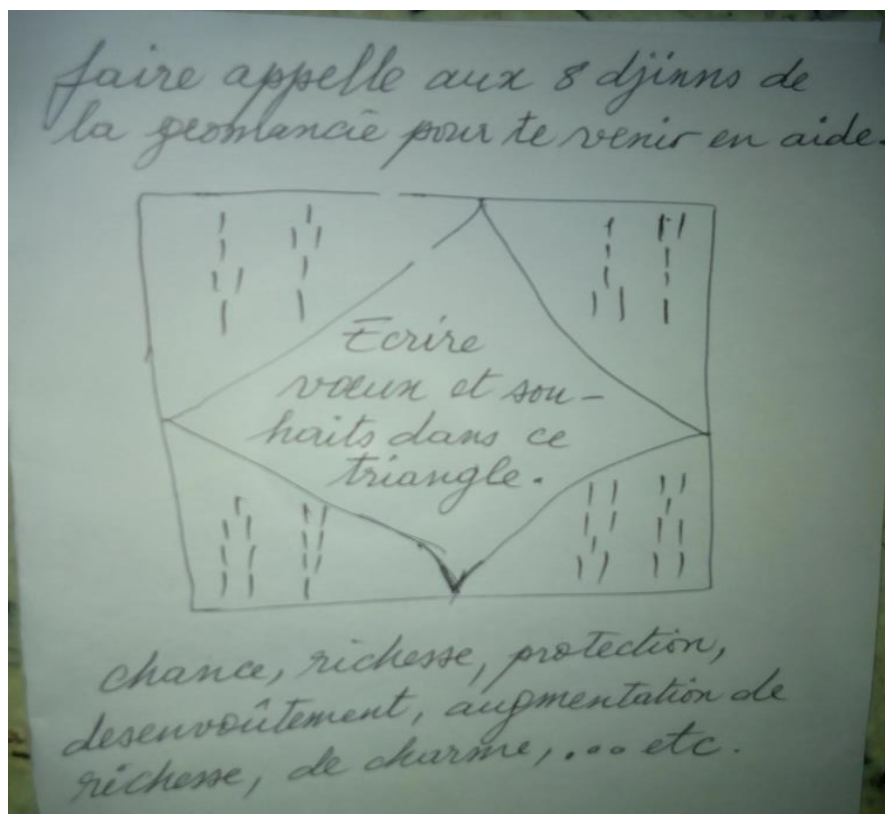 faire appelle aux 8 djinns de
la geomancie pour te venir en aide.
Ecrire
vœux et sou-
haits dans ce
triangle.
chance, richesse, protection,
desenvoûtement, augmentation de
richesse, de charme,... etc.